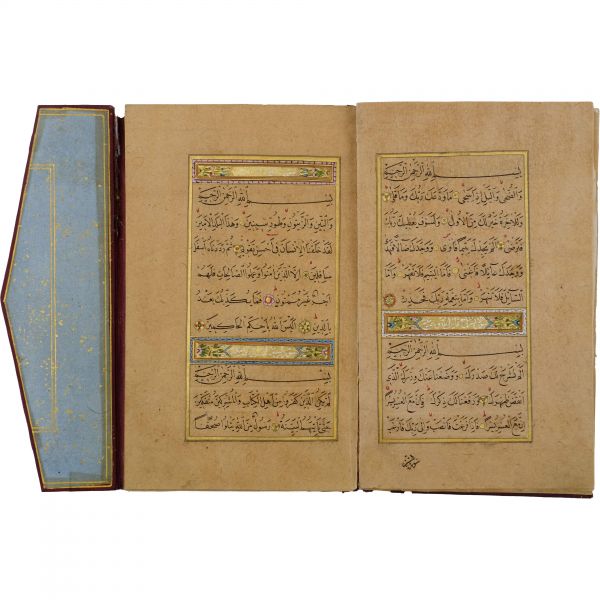 بسم الله الرحمن الرحيم
والضحى والليل اذا سجى ما ودعك ربك وما قلى
وللاخرة خير لك من الاولى ولسوف يعطيك ربك
فترضى الم يجدك يتيما فاوى ووجدك ضالا فهدى
ووجدك عائلا فاغنى فاما اليتيم فلا تقهر واما
السائل فلا تنهر واما بنعمة ربك فحدث
بسم الله الرحمن الرحيم
الم نشرح لك صدرك ووضعنا عنك وزرك الذي
انقض ظهرك ورفعنا لك ذكرك فان مع العسر يسرا
ان مع العسر يسرا فاذا فرغت فانصب والى ربك فارغب
بسم الله الرحمن الرحيم
والتين والزيتون وطور سينين وهذا البلد الامين
لقد خلقنا الانسان في احسن تقويم ثم رددناه اسفل
سافلين الا الذين امنوا وعملوا الصالحات فلهم
اجر غير ممنون فما يكذبك بعد
بالدين اليس الله باحكم الحاكمين
بسم الله الرحمن الرحيم
لم يكن الذين كفروا من اهل الكتاب والمشركين منفكين
حتى تاتيهم البينة رسول من الله يتلوا صحفا